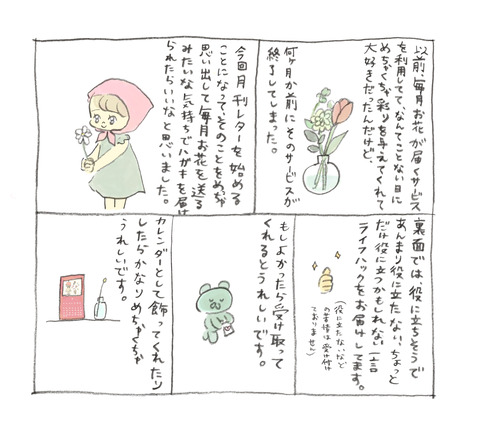 以前、毎月お花が届くサービス
を利用してて、なんてことない日に
めちゃくちゃ彩りを与えてくれて
大好きだったんだけど、
何ヶ月か前にそのサービスが
終了してしまった。
今回月刊レターを始める
ことになって、そのことをめちゃ
思い出して毎月お花を送る
みたいな気持ちでハガキを届け
られたらいいなと思いました。
裏面では役に立ちそうで
あんまり役に立たない、ちょっと
だけ役に立つかもしれない一言
ライフハックをお届けしてます。
(役に立たないなど
の苦情は受け付け
ておりません)
もしよかったら受け取って
くれるとうれしいです。
カレンダーとして飾ってくれたり
したらかなりめちゃくちゃ
うれしいです。